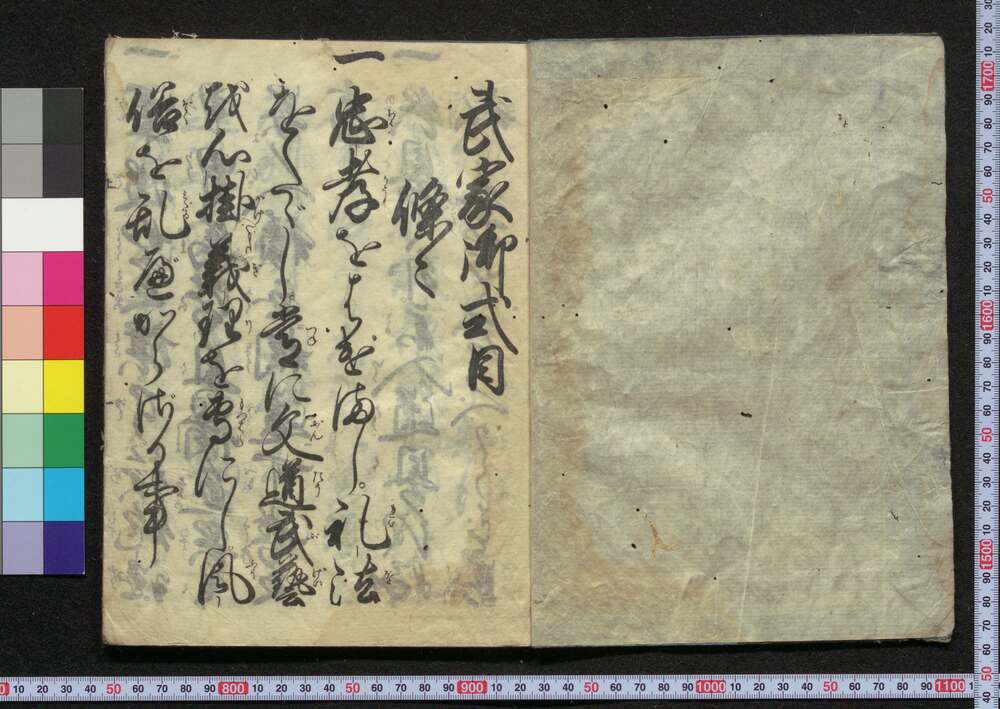 武家御式目
條々
一 忠孝をはげまし礼法
をたゞし常に文道武藝
を心掛義理を専にし風
俗を乱べからざる事